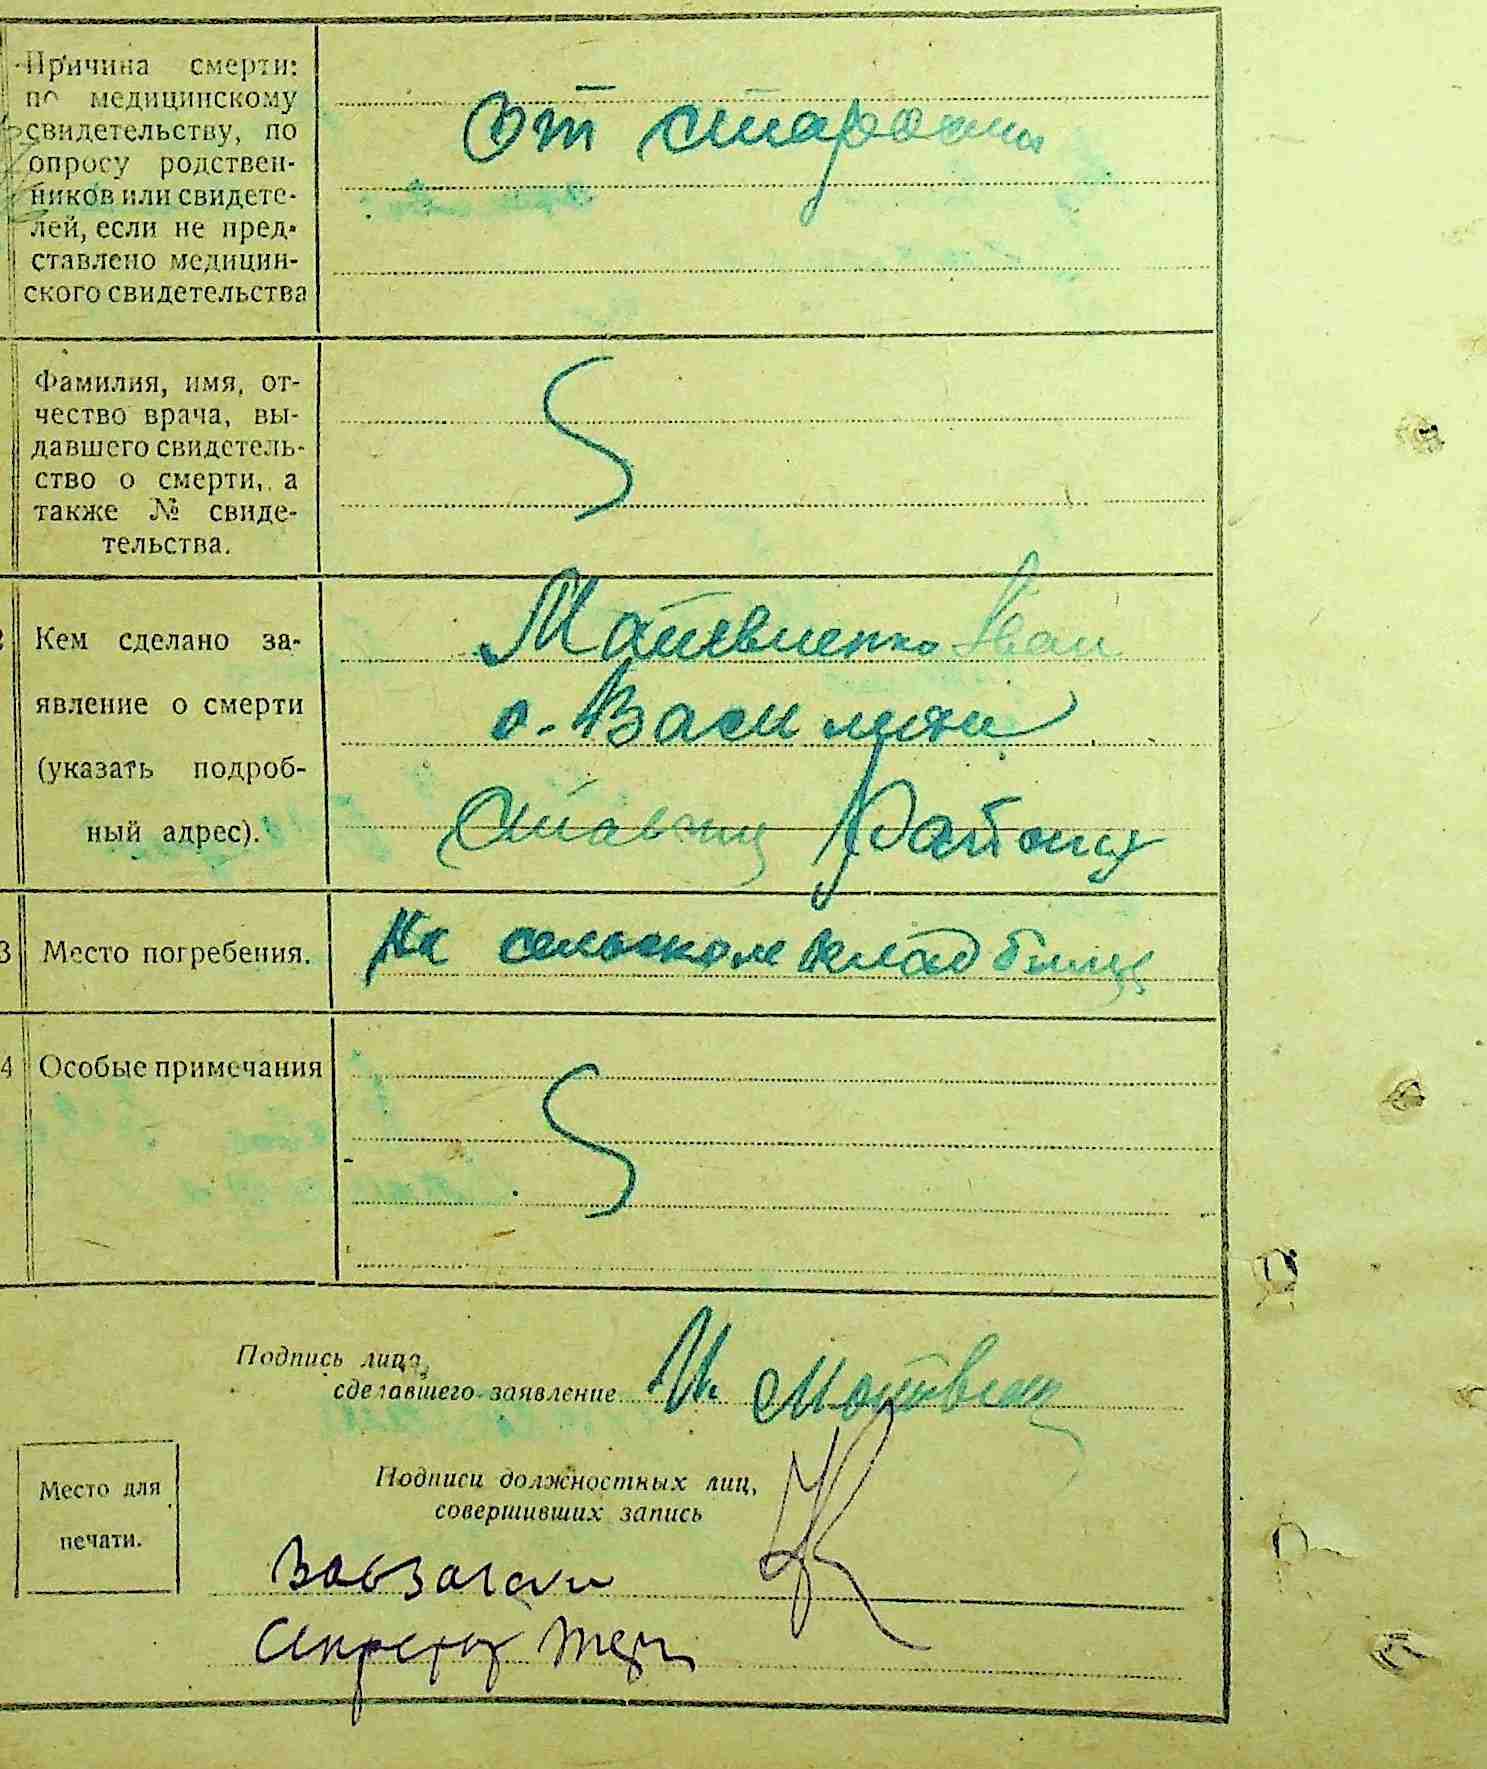 Причина смерти:
по медицинскому
свидетельству, по
опросу родствен-
ников или свидете-
лей, если не пред-
ставлено медицин-
ского свидетельства
От старости
Фамилия, имя, от-
чество врача, вы-
давшего свидетель-
ство о смерти, а
также № свиде-
тельства.
Кем сделано за-
явление о смерти
(указать подроб-
ный адрес).
Матевиенко Иван
с. Василики
Ставищ района
3 Место погребения.
На сельском кладбищ
4 Особые примечания
Подпись лица,
сделавшего заявление И.
Подписи должностных лиц,
совершивших запись
Место для
печати.
Завзагсом
Секретар